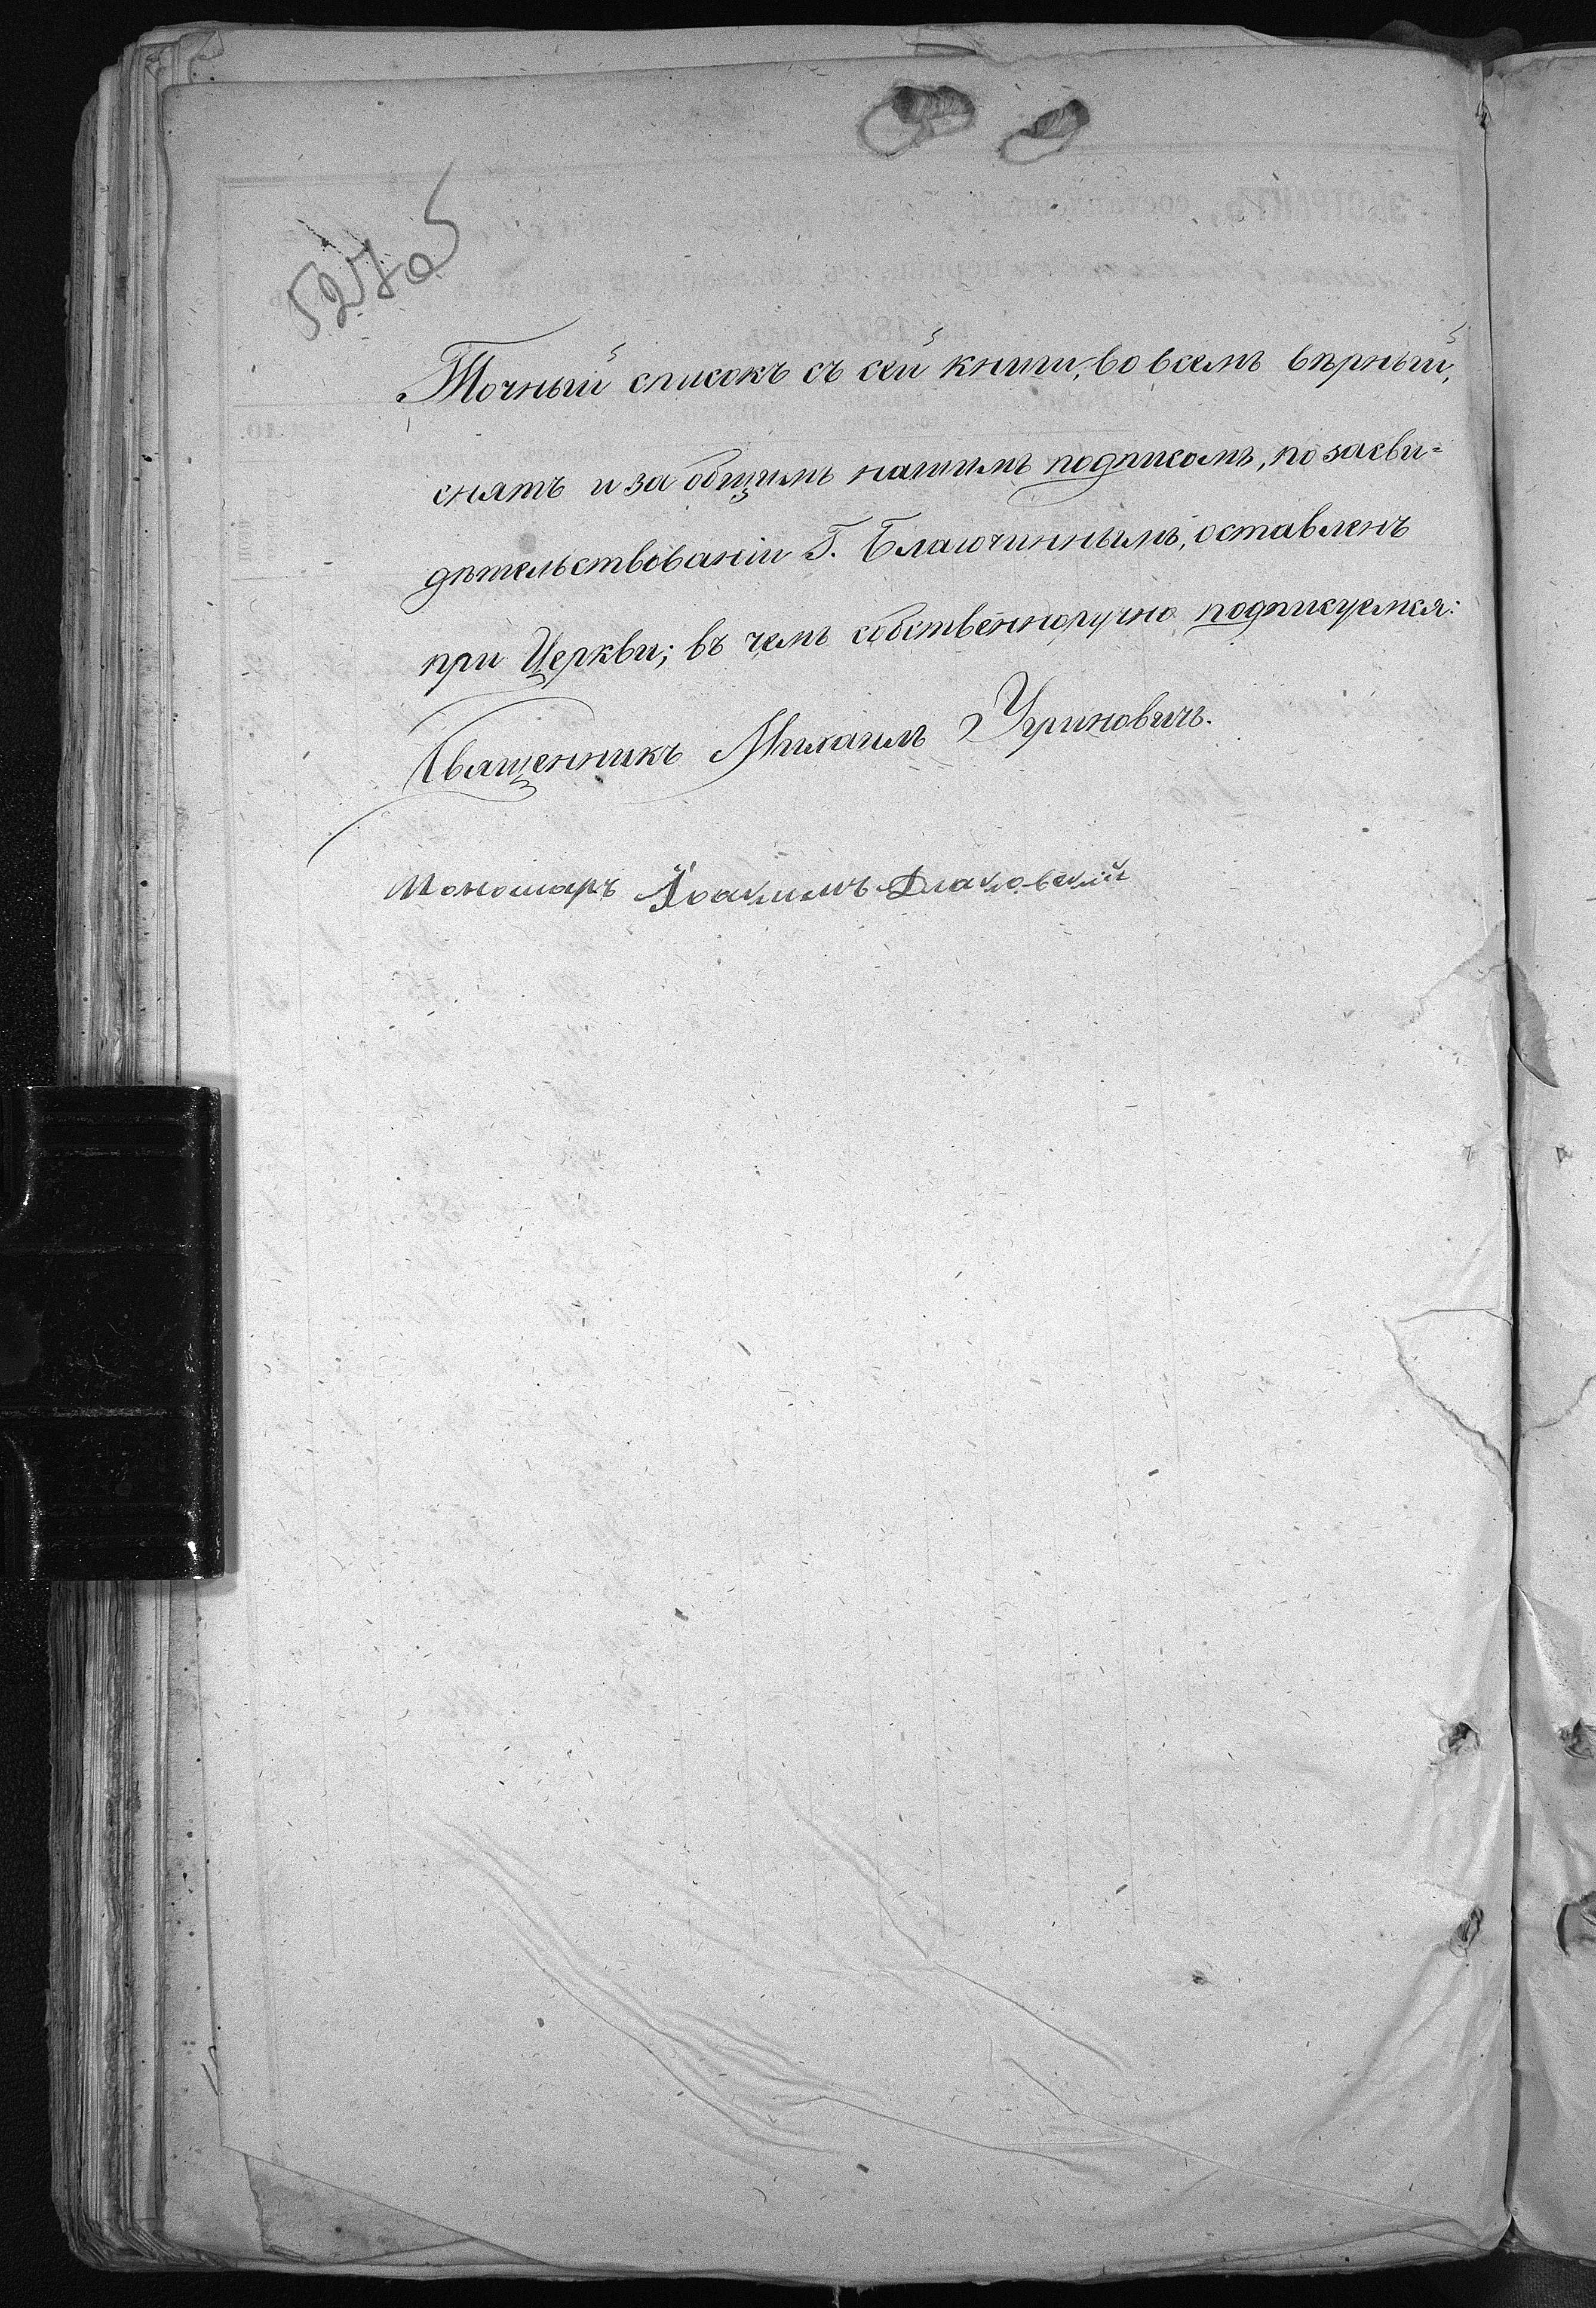 527об
Точный списокъ съ сей книги, во всемъ вѣрный,
снятъ и за общимъ нашимъ подписомъ, по засви=
дѣтельствованіи Г. Благочиннымъ, оставленъ
при Церкви; въ чемъ собственноручно подписуемся:
Священникъ Михаилъ Угриновичъ.
Пономаръ Іоакимъ